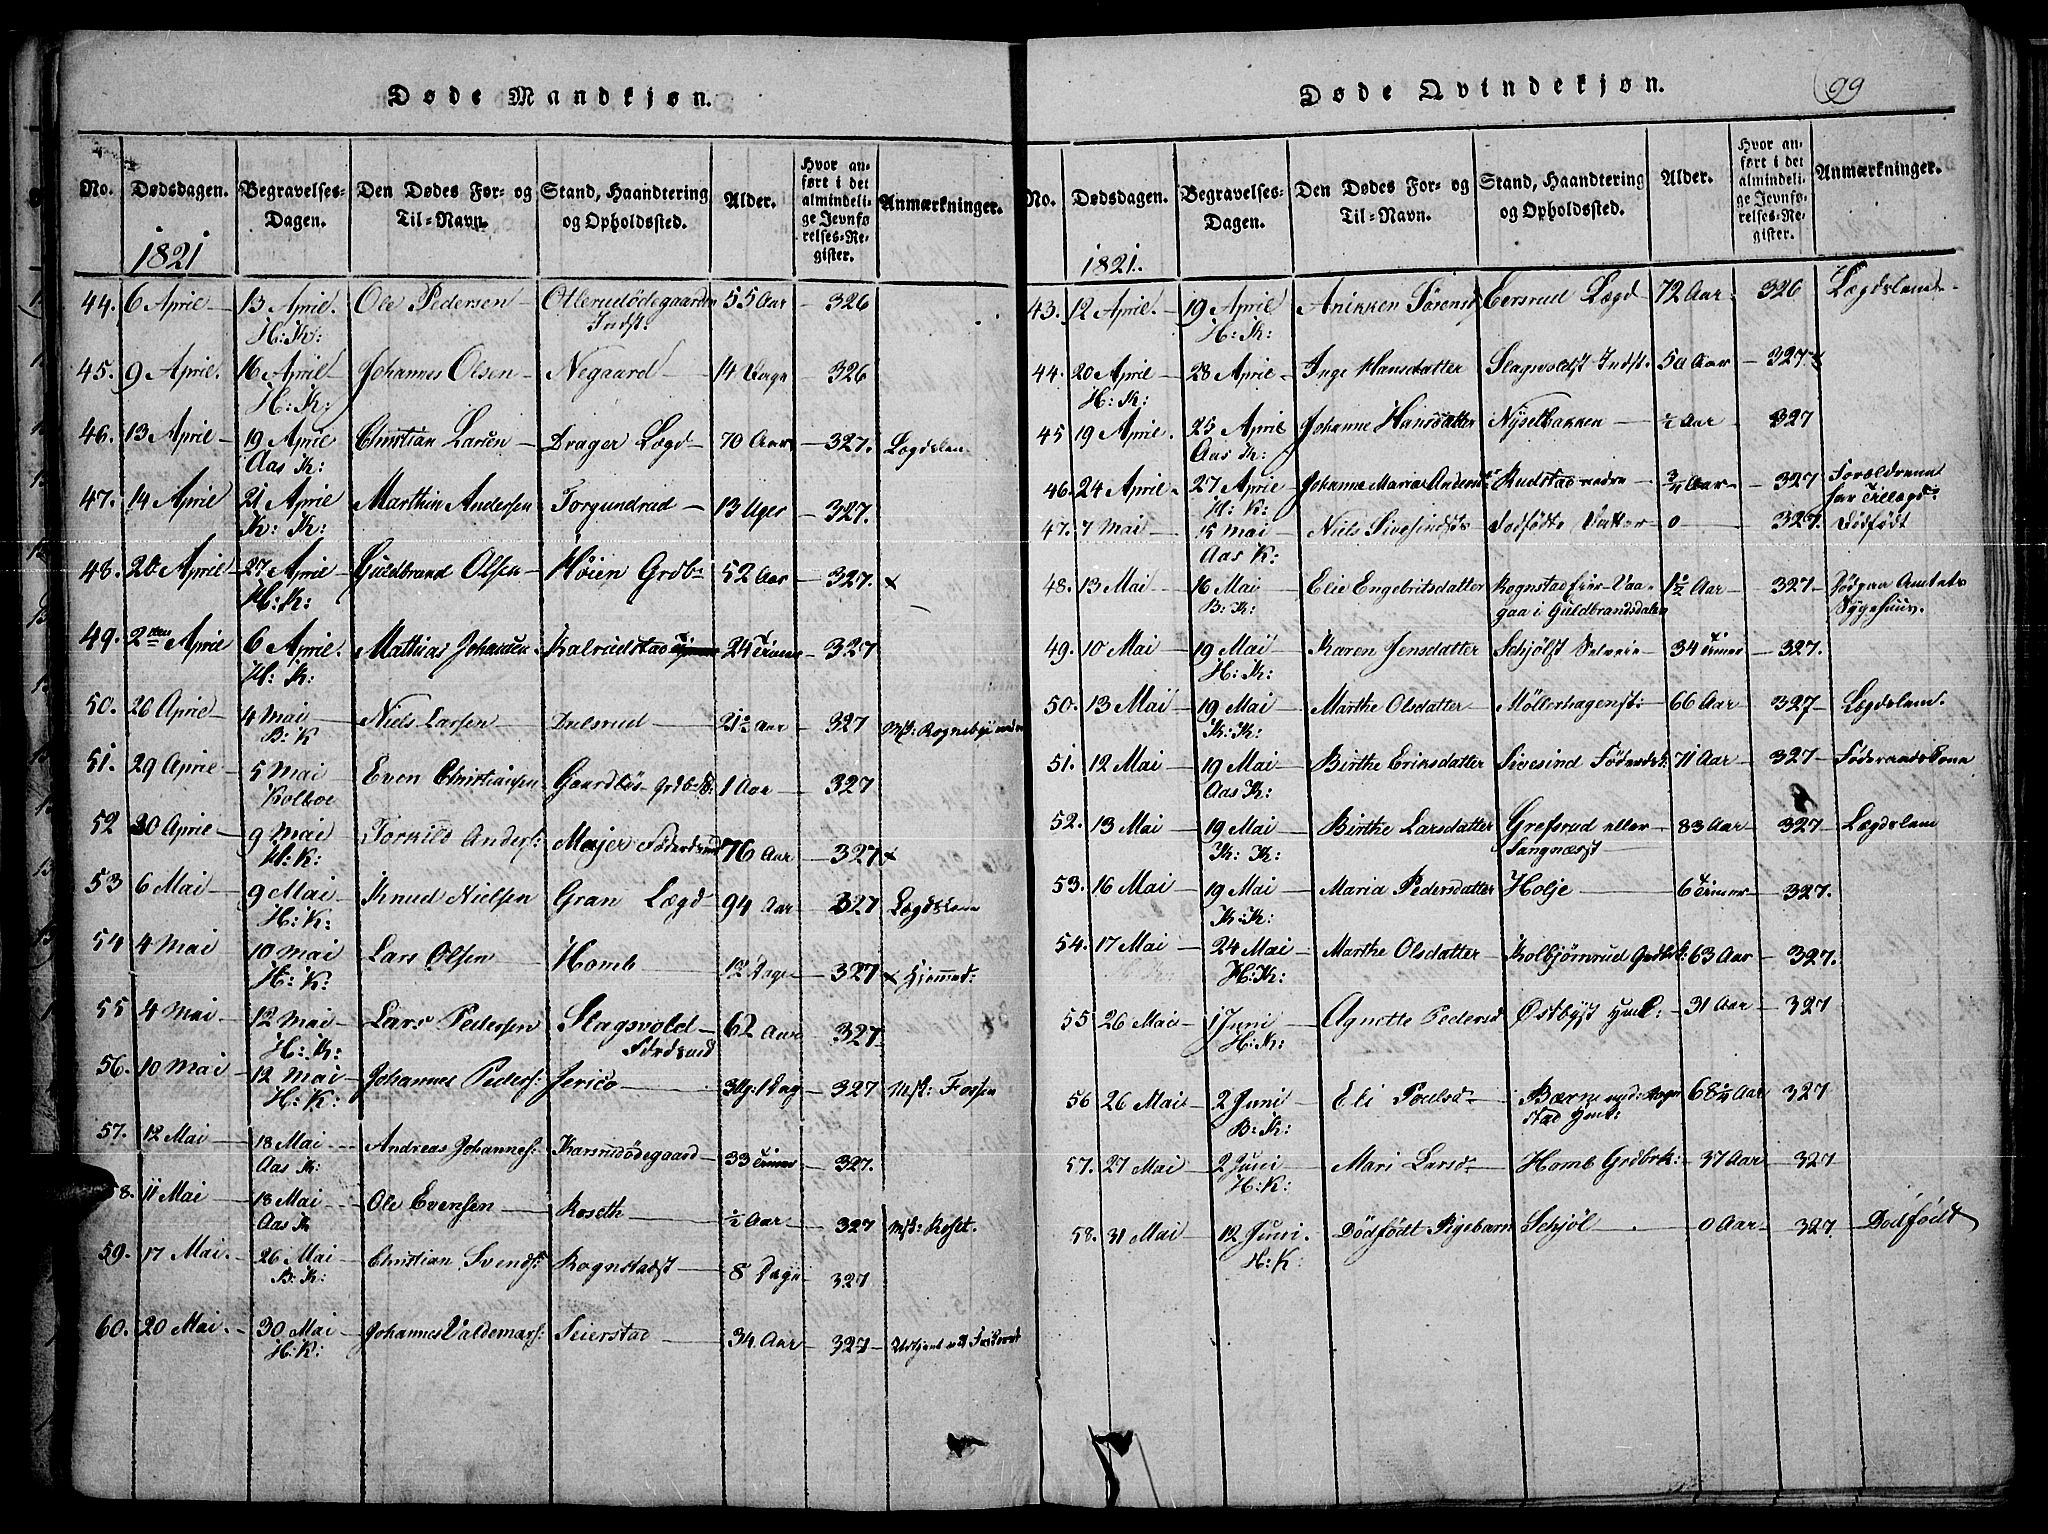 Døde Mandkjøn.
No. Dødsdagen. Begravelses-Dagen. Den Dødes For- og Til-Navn. Stand, Haandtering og Opholdssted. Alder. Hvor anført i det almindelige Jevnførelses-Register. Anmærkninger.
1821
44. 6 April 13 April. Ole Pedersen 55 Aar 326
H: K: Indst:
45. 9 April. 16 April Johannes Olsen Negaard 14 326
H: K:
46. 13 April 19 April Christian Larsen Drager Lægd 70 Aar 327. Lægdslem
Aas K:
47. 14 April 21 April Marthin Andersen Torgundrud 13 Uger 327.
K: K:
48. 20 April 27 April Guldbrand Olsen Høien Grdbr 52 Aar 327. x
H: K:
49. 2den April 6 April. Mathias Johansen Kalrudstad 24 Timer 327
H: K:
50. 26 April 4 Mai Niels Larsen Dulsrud 21½ Aar 327
B: K
51. 29 April 5 Mai Even Christiansen Gaardløs 1 Aar 327
Kolboe
52 30 April 9 Mai Torkild Anders: Meijer 76 Aar 327 x
H: K:
53 6 Mai 9 Mai Knud Nielsen Gran Lægd 94 Aar 327 Lægdslem
H: K:
54 4 Mai 10 Mai Lars Olsen Homb 12 Dage 327 x Hjemmed:
H: K:
55 4 Mai 12 Mai Lars Pedersen Slagsvold 62 Aar 327
H: K:
56. 10 Mai 12 Mai Johannes Peders: Jerico 327 Fossen
H: K:
57. 12 Mai 18 Mai Andreas Johannes: Karsrudødegaard 33 Timer 327.
Aas K:
58. 11 Mai 18 Mai Ole Evensen Koseth ½ Aar 327 Koset.
Aas K
59. 17 Mai. 26 Mai Christian Svends: Rognstadst 8 Dage 327
B: K:
60. 20 Mai. 30 Mai Johannes Valdemars: Seierstad 34 Aar 327
H: K:
Døde Qvindekjøn. 99
No. Dødsdagen. Begravelses-Dagen. Den Dødes For- og Til-Navn. Stand, Haandtering og Opholdssted. Alder. Hvor anført i det almindelige Jevnførelses-Register. Anmærkninger.
1821.
43. 12 April. 19 April Anikken Sørensd Eersrud Lægd 72 Aar 326 Lægdslem
H: K:
44. 20 April 28 April Inge Hansdatter Slagvoldst Indst. 50 Aar 327 x
H: K:
45 19 April. 25 April Johanne Hansdatter Nysetbakken ½ Aar 327
Aas K:
46. 24 April. 27 April Johanne Maria Rudstad nedre ¾ Aar 327 Forældrene
H: K: har
47. 7 Mai 15 Mai Niels Sivesindst Dødfødte Datter 0 327. Dødfødt
Aas K:
48. 13 Mai 16 Mai Elie Engebritsdatter Kognstad fra Vaa- 1½ Aar 327 Amtets
B: K: gaa i Guldbrandsdalen Sygehuus.
49. 10 Mai 19 Mai Karen Jensdatter Schjølst 34 Timer 327.
H: K:
50. 13 Mai 19 Mai Marthe Olsdatter Möllerhagenst: 66 Aar 327 Lægdslem.
K: K:
51. 12 Mai 19 Mai Birthe Eriksdatter Sivesind 71 Aar 327 Føderaadskone
Aas K:
52. 13 Mai 19 Mai Birthe Larsdatter Grefsrud eller 83 Aar 327 Lægdslem
K: K: Sangnæsst
53. 16 Mai 19 Mai Maria Pedersdatter Holje 6 Timer 327.
K: K:
54. 17 Mai 24 Mai Marthe Olsdatter Kolbjørnrud 63 Aar 327.
H: K:
55 26 Mai 1 Juni Agnette Pedersd Østbyst 31 Aar 327
H: K:
56 26 Mai 2 Juni Eli Poulsd 327
B: K:
57. 27 Mai 2 Juni Mari Larsd Homb Grdbrk: 37 Aar 327
H: K:
58. 31 Mai 12 Juni. Dødfødt Pigebarn Schjøl 0 Aar 327 Dødfødt
H: K: